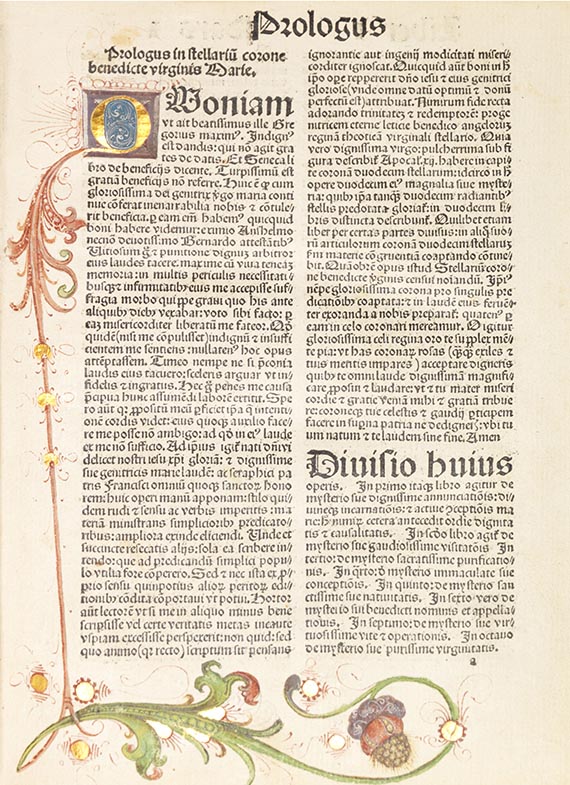 Prologus
Prologus in stellariū corone
benedicte virginis Marie.
QUoniam
vt ait beatissimus ille Gre
gorius maxim⁹. Indign⁹
est dandis: qui nō agit gra
tes de datis. Et Seneca li
bro de beneficijs dicente. Turpissimū est
gratiā beneficijs nō referre. Hinc
gloriosissima dei genitrix maria conti
nue cōferat inenarrabilia nobis
rit beneficia. eam habem⁹ quicquid
boni habere videmur: eximio Anselmo
necnō deuotissimo Bernardo attestātib⁹
punitione dignus arbitror
eius laudes tacere. maxime cū vita tenear
memoria: in multis periculis necessitati
busqʒ infirmitatib⁹ eius me accepisse suf
fragia morbo qui graui quo his ante
aliquib⁹ vexabar: voto sibi facto:
misericorditer liberatū me fateor.
quidē (nisi me cōpulisset) indignū
cientem me sentiens: nullaten⁹ hoc opus
attēptassem. Timeo nempe ne si
laudis eius tacuero: sceleris arguar vt in
fidelis & ingratus. Hec penes me causa
hunc assumēdi laborē extitit. Spe
ro aūt meū intenti
onē cordis videt: eius quoqʒ auxilio face
re me posse nō ambigo: ad qd
me nō sufficio. igit
delicet nostri iesu xpi gloriā: & dignissime
sue genitricis marie laudē: ac seraphici pa
tris Francisci omniū quoqʒ sanctorʒ hono
rem: huic operi manū apponam: stilo qui
dem rudi & sensu ac verbis imperitis: ma
teriam ministrans simplicioribus predicato
ribus: ampliora exinde eliciendi. Unde et
succincte resecatis alijs: sola ea scribere in
tendo: que ad predicandū simplici popu
lo vtilia fore cōperero. Sed nec ista
prio sensu quinpotius alioꝝ
cōdita cōportaui vt potui. Hortor
aūt lectorē vt si me in aliquo minus bene
scripsisse vel certe veritatis metas ineaute
vspiam excessisse perspexerit: non quid: sed
quo animo (qr recto) scriptum sit pensans
ignorantie aut ingenij modicitati miseri
corditer ignoscat. Quicquid aūt boni in
ope repperit dño iesu & eius genitrici
gloriose (vnde omne datū optimū & donū
perfectū est) attribuat. Nimirum fide recta
adorando trinitatē & redemptorē: proge
nitricem eterne lucis benedico angeloruʒ
regina theotica virginali stellario. Quia
vero dignissima virgo: pulcherrima sub fi
gura describit Apocal. xij. habere in capi
te coronā duodecim stellarum: idcirco in
opere duodecim magnalia siue myste
ria: quib⁹ duodecim radiantib⁹
stellis gloriat: in duodecim li
bris distincta describunt. Quilibet etiam
liber per certas partes diuisus: in
rū articulorum coronā duodecim stellarum
materie cōgruentiā coaptando cōtine
bit. Quāobrē opus istud Stellariū coro
ne benedicte virginis censui notandū.
nempe gloriosissima corona pro singulis pre
dicatiōib⁹ coaptata: & in laudē eius
ter exoranda a nobis preparat:
eam in celo coronari mereamur. O igitur
gloriosissima celi regina oro te supplex
te pia: vt has coronaꝝ rosas exiles &
tuis meritis impares) acceptare digneris:
quib⁹ te omni laude dignissimā magnifi
care & laudare: vt & tu mater miseri
cordie & gratie veniā mihi & gratiā tribue
re: coroneqʒ tue celestis & gaudij pticipem
facere in superna patria ne dedigneris: vbi tu
um natum & te laudem sine fine. Amen
Diuisio huius
operis. In primo itaqʒ libro agitur de
mysterio sue dignissime annunciatiōis: di
uineqʒ incarnatiōis: & actiue cōceptiōis ma
rie: numiꝝ cetera antecedit ordie dignita
tis & causalitatis. In scdo libro agit de
mysterio sue gaudiosissime visitatōis. In
tertio: de mysterio sacratissime purificatio
nis. In qrto: de mysterio immaculate sue
conceptiōis. In quinto: de mysterio san
ctissime sue natiuitatis. In sexto vero de
mysterio sui benedicti nominis et appella
tionis. In septimo: de mysterio sue vir
tuosissime vite & operationis. In octauo
de mysterio sue purissime virginitatis.
a